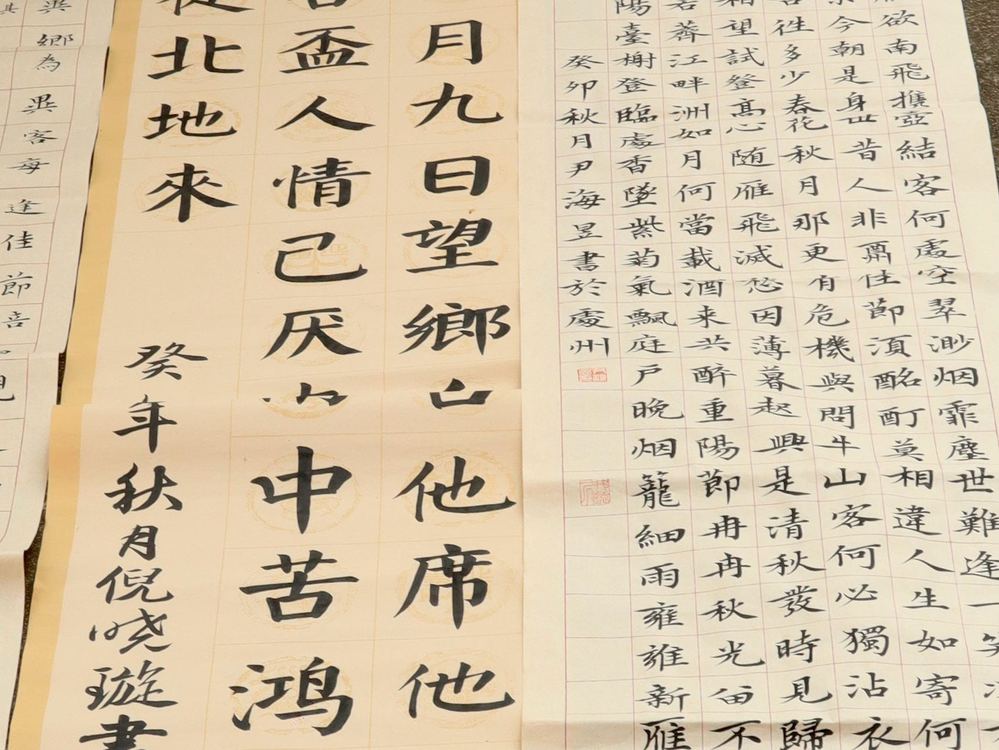 欲南飛攜壺結客何處空翠渺烟霏塵世難逢一笑
今朝是身世昔人非佳節須酩酊莫相違人生如寄何
往多少春花秋月那更有危機與問牛山客何必獨沾衣
相望試登高心随雁飛滅愁因薄暮起興是清秋發時見歸
若薺江畔洲如月何當載酒来共醉重陽節冉冉秋光留不
陽臺榭登臨處香墜紫菊氣飄庭户晚烟籠細雨雍雍新雁
癸卯秋月尹海昱書於處州
月九日望鄉台他席他
盃人情己厌中苦鸿
從北地來
癸年秋月倪晓璇書
鄉為異客每逢佳節倍